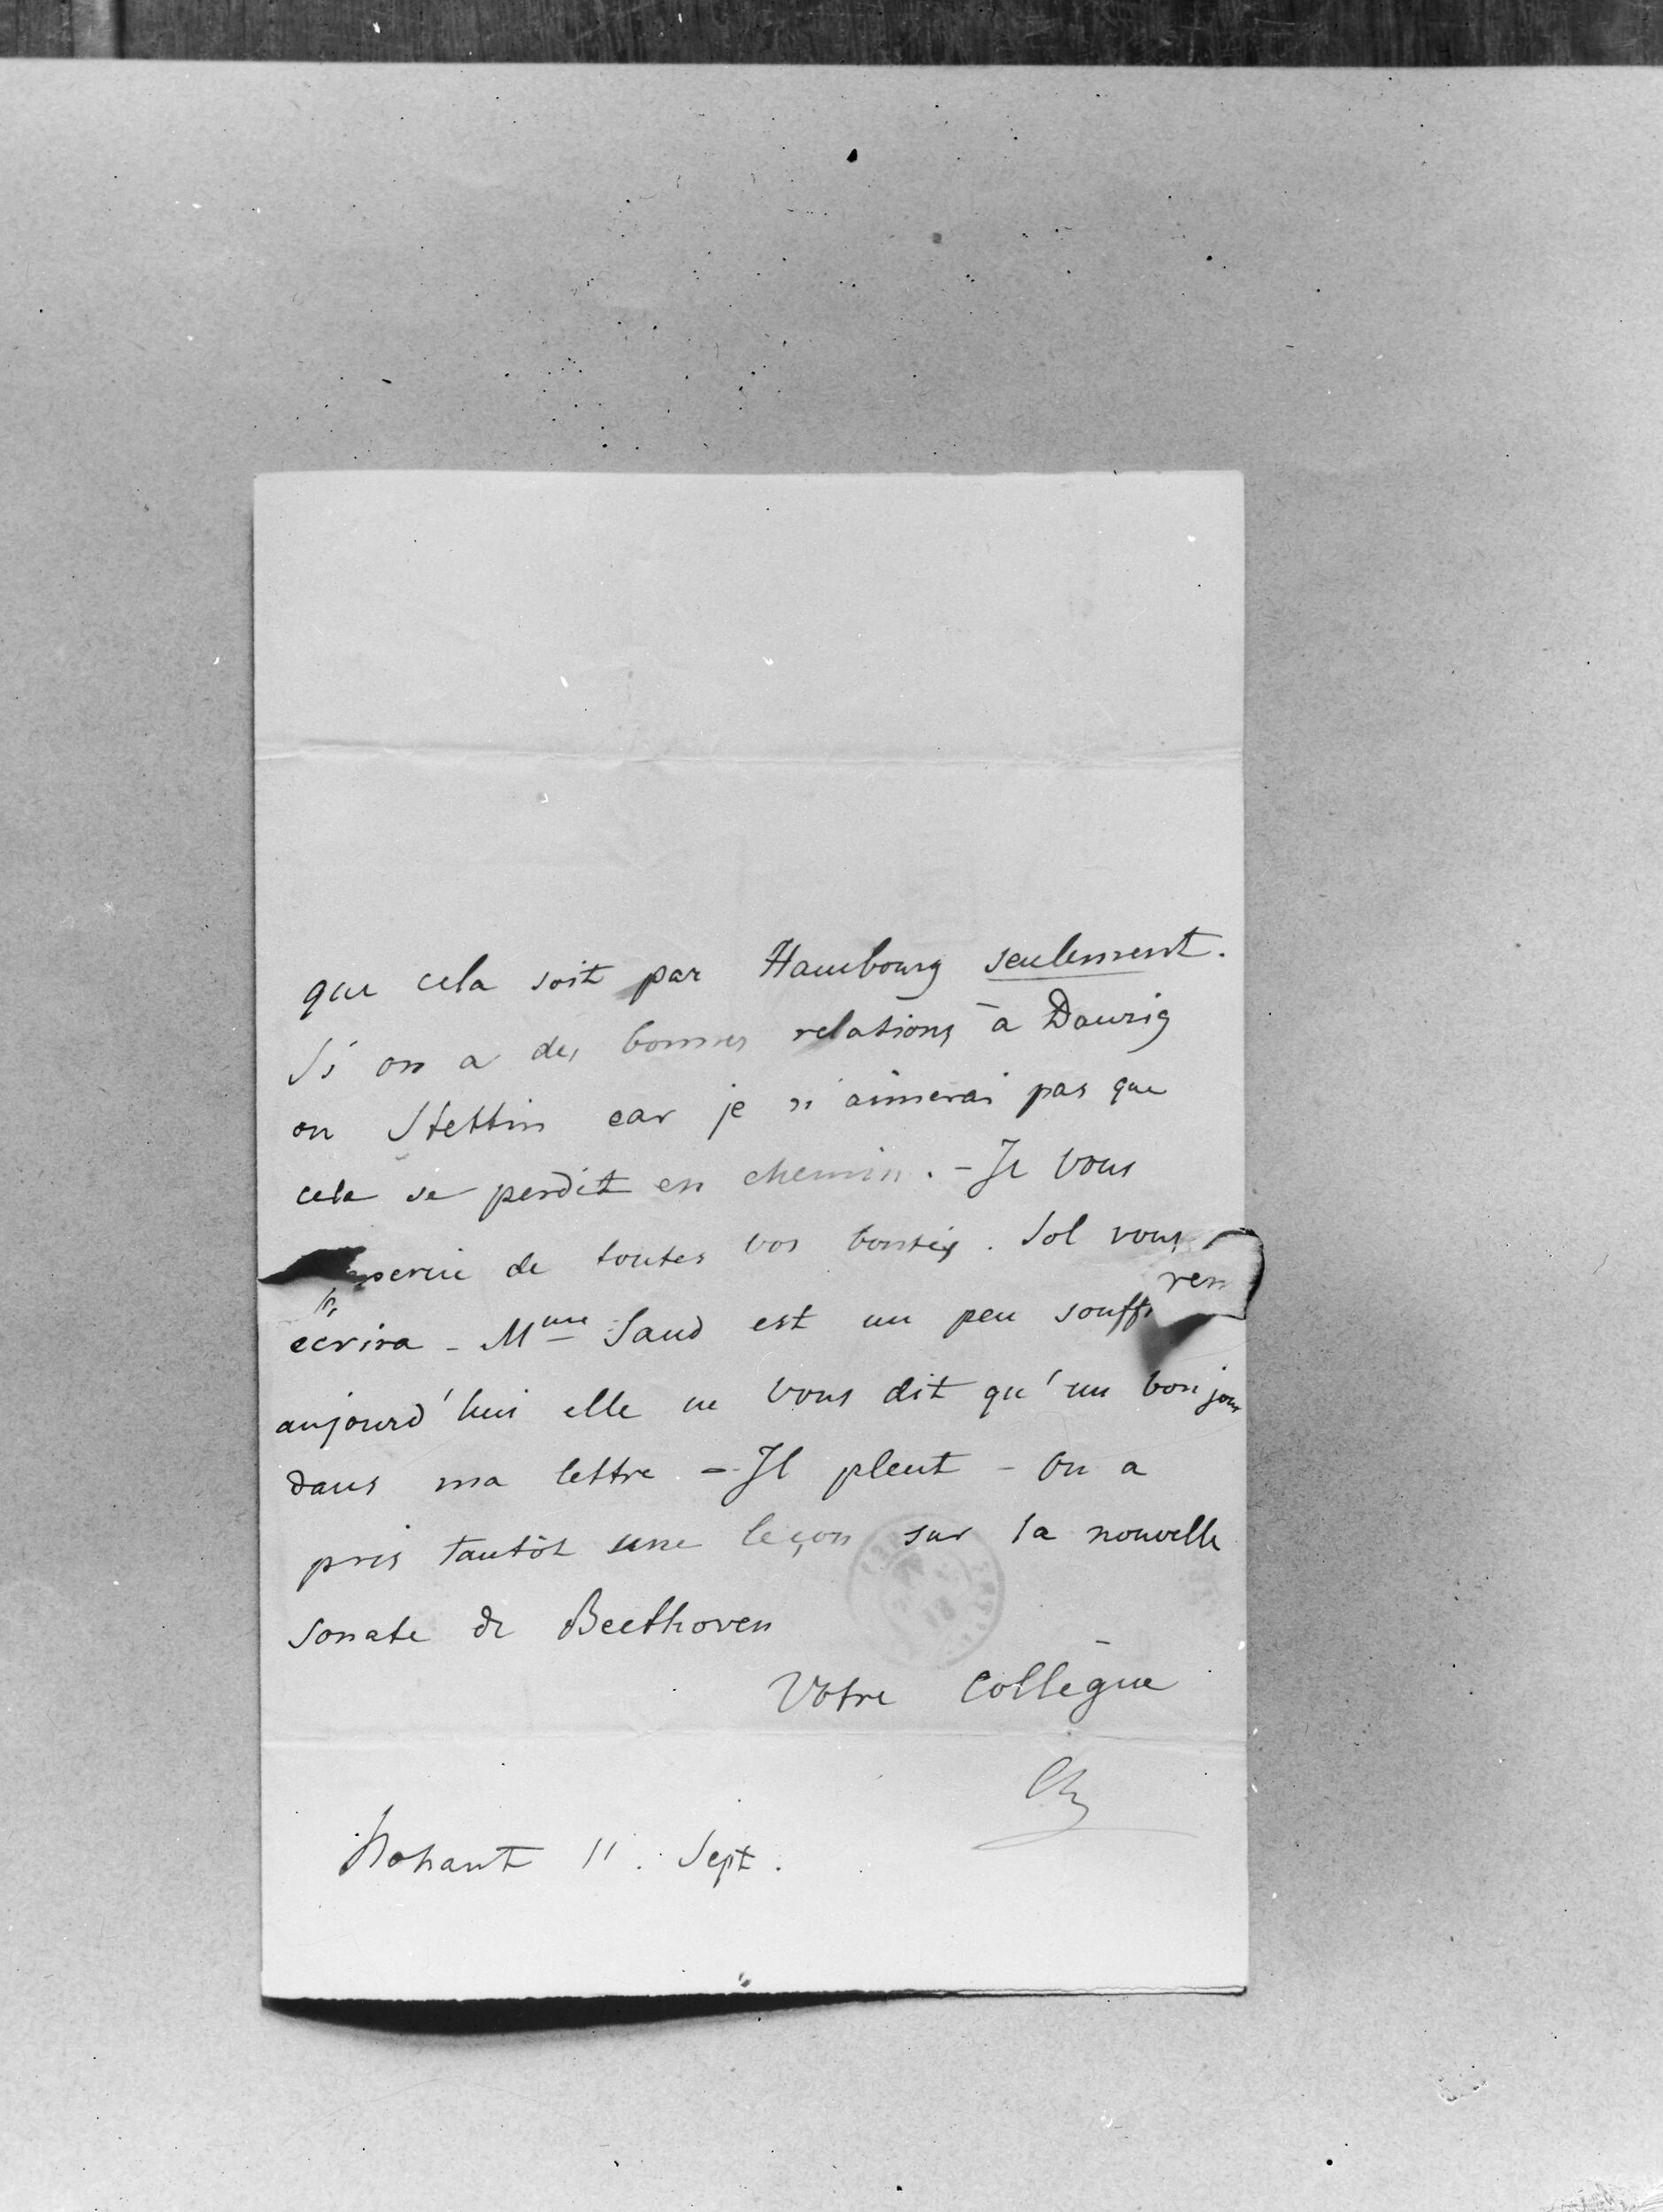 que cela soit par Hambourg seulement.
Si on a des bonnes relations à Danzig
ou Stettin car je n'aimerai pas que
cela se perdit en chemin. - Je vous
de toutes vos bontés. Sol vous
écrira - Mme Sand est un peu souff ren
aujourd'hui elle ne vous dit qu'un bonjour
dans ma lettre - Il pleut - On a
pris tantôt une leçon sur la nouvelle
sonate de Beethoven
Votre Collègue
Ch
Nohant 11. Sept.